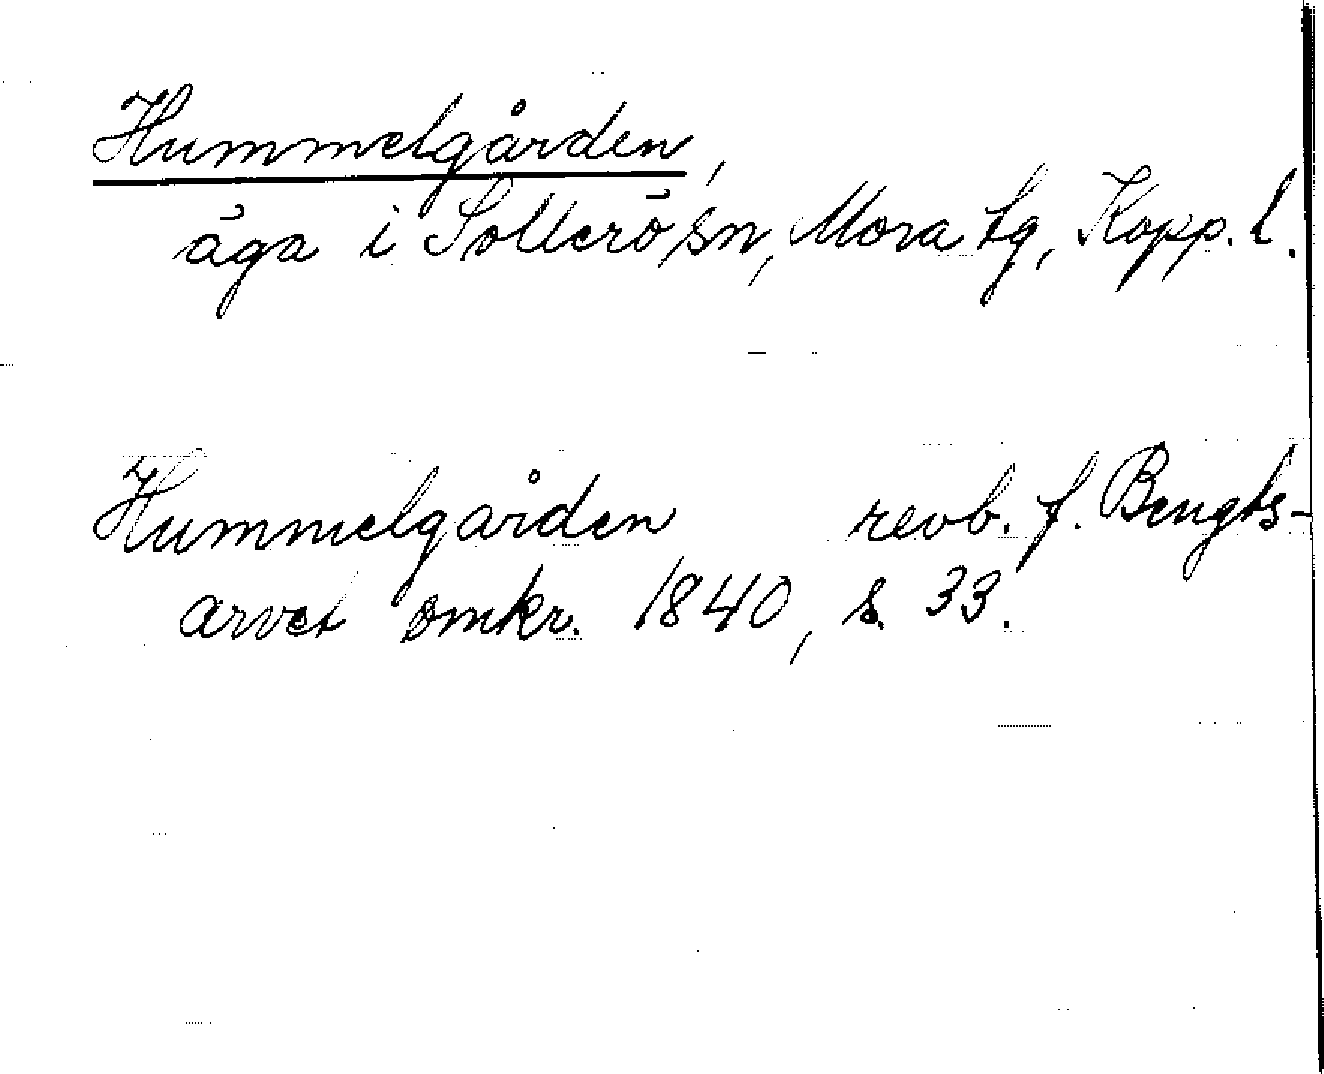 Hummelgården,
äga i Sollerö sn, Mora tg, Kopp. l.
Hummelgården revb. f. Bengts-
arvet omkr. 1840, s. 33.